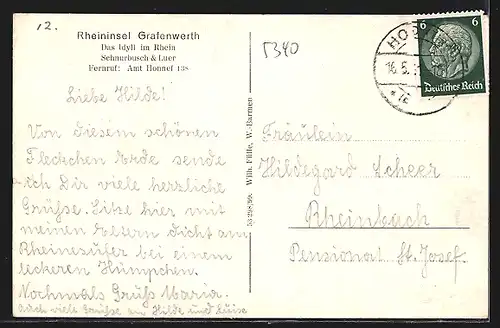 12.
Rheininsel Grafenwerth
Das Idyll im Rhein
Schnurbusch & Luer
Fernruf: Amt Honnef 138
5340
Liebe Hilde!
Von diesem schönen
Fleckchen Erde sende
ich Dir viele herzliche
Grüße. Sitze hier mit
meinen Eltern dicht am
Rheinesufer bei einem
leckeren Hümpchen.
Nochmals Gruß Maria.
auch viele Grüße an Hilde und Luise
53 298/99. Wilh. Fülle, W.-Barmen
6 6
Deutsches Reich
16.5.
Fräulein
Hildegard Scheer
Rheinbach
Pensionat St. Josef.